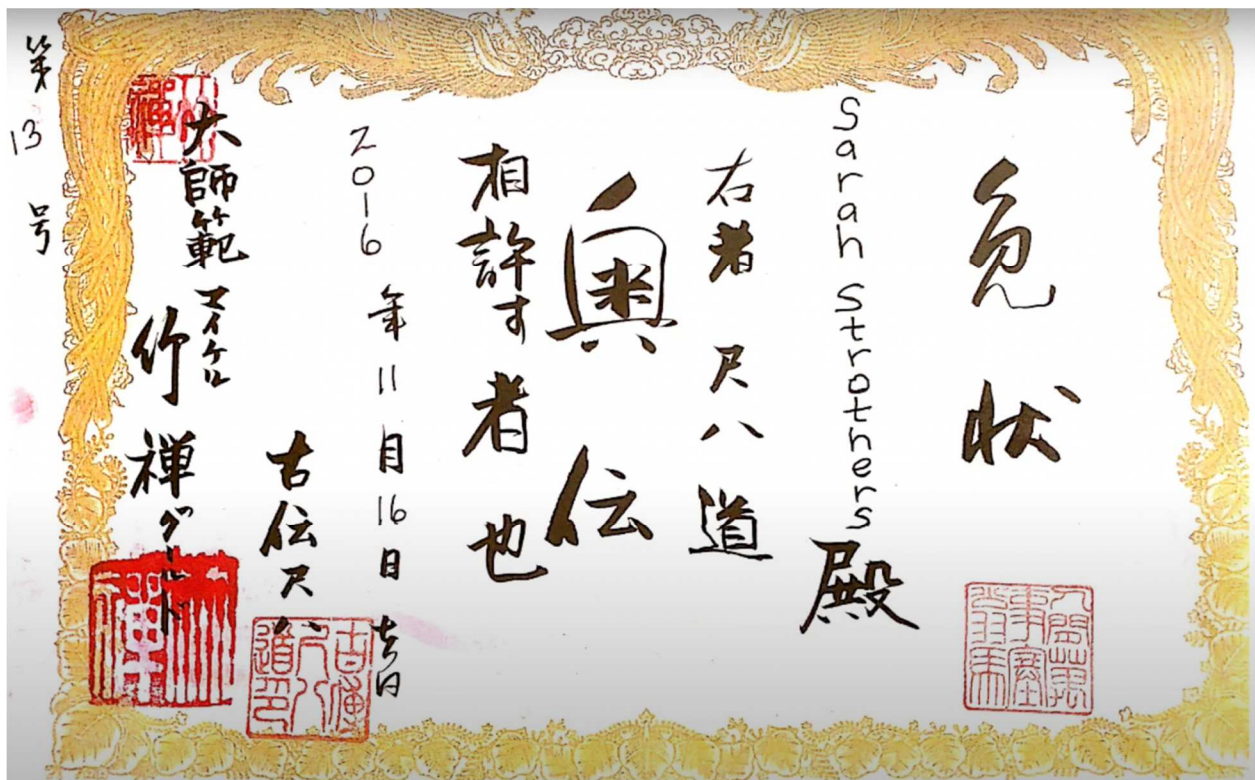 免状
Sarah Strothers殿
右者 尺八道
奥伝
相許す者也
2016年11月16日 吉日
古伝尺八
大師範 マイケル
竹禅グールド
第13号